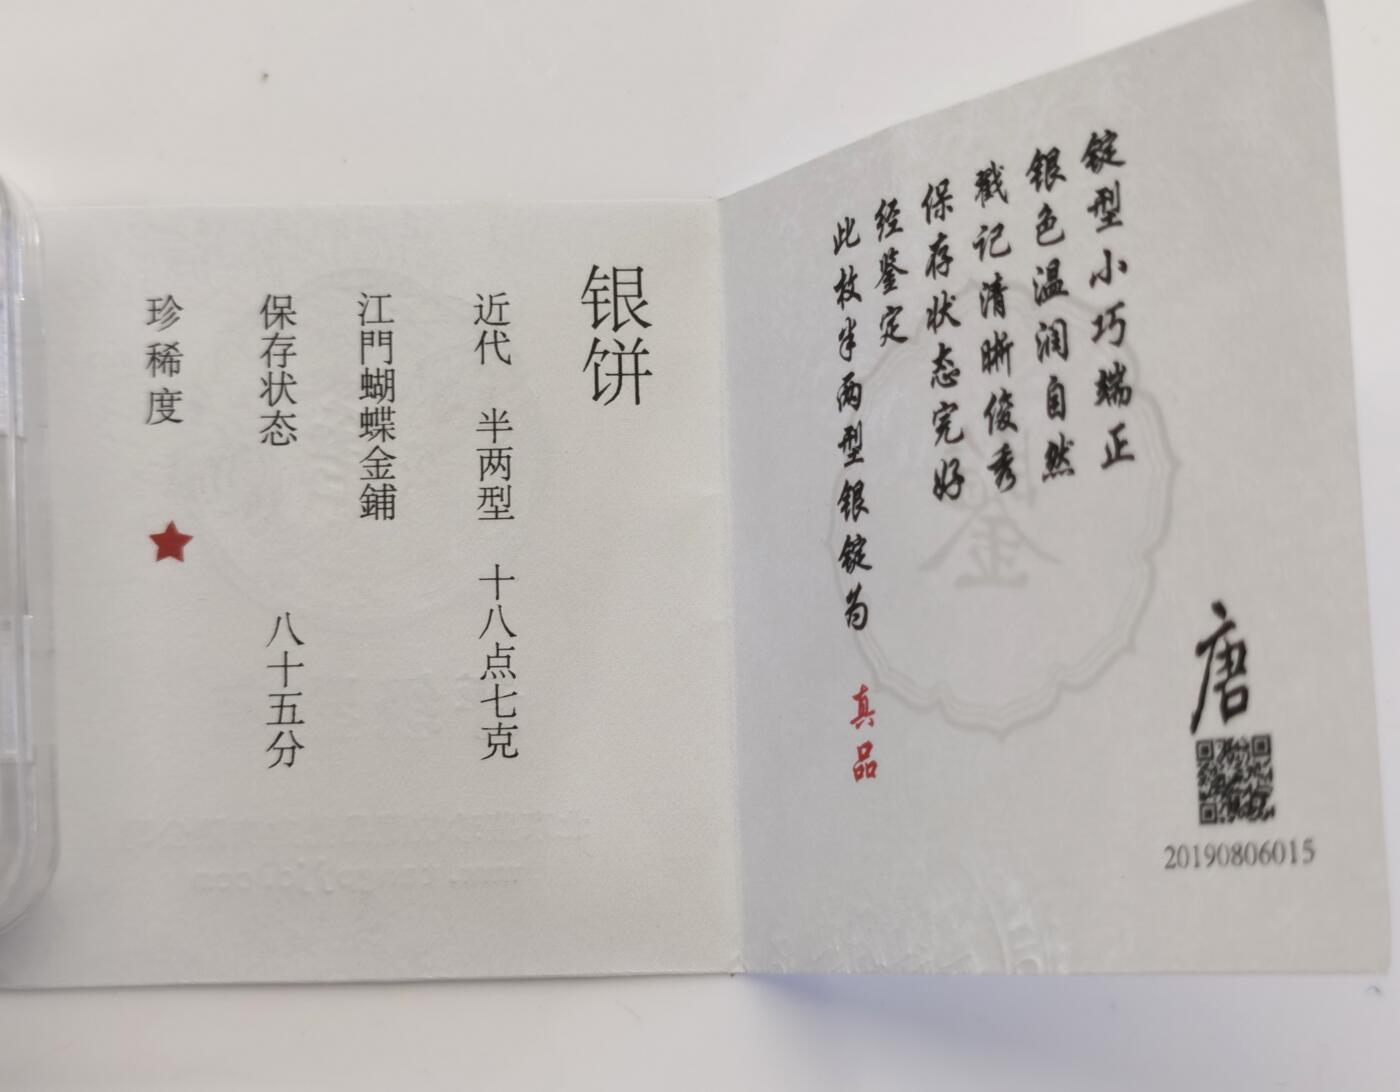 锭型小巧端正
银色温润自然
戳记清晰俊秀
保存状态完好
经鉴定
此枚半两型银锭为 真品
唐
20190806015
银饼
近代 半两型 十八点七克
江門蝴蝶金鋪
保存状态 八十五分
珍稀度 ★